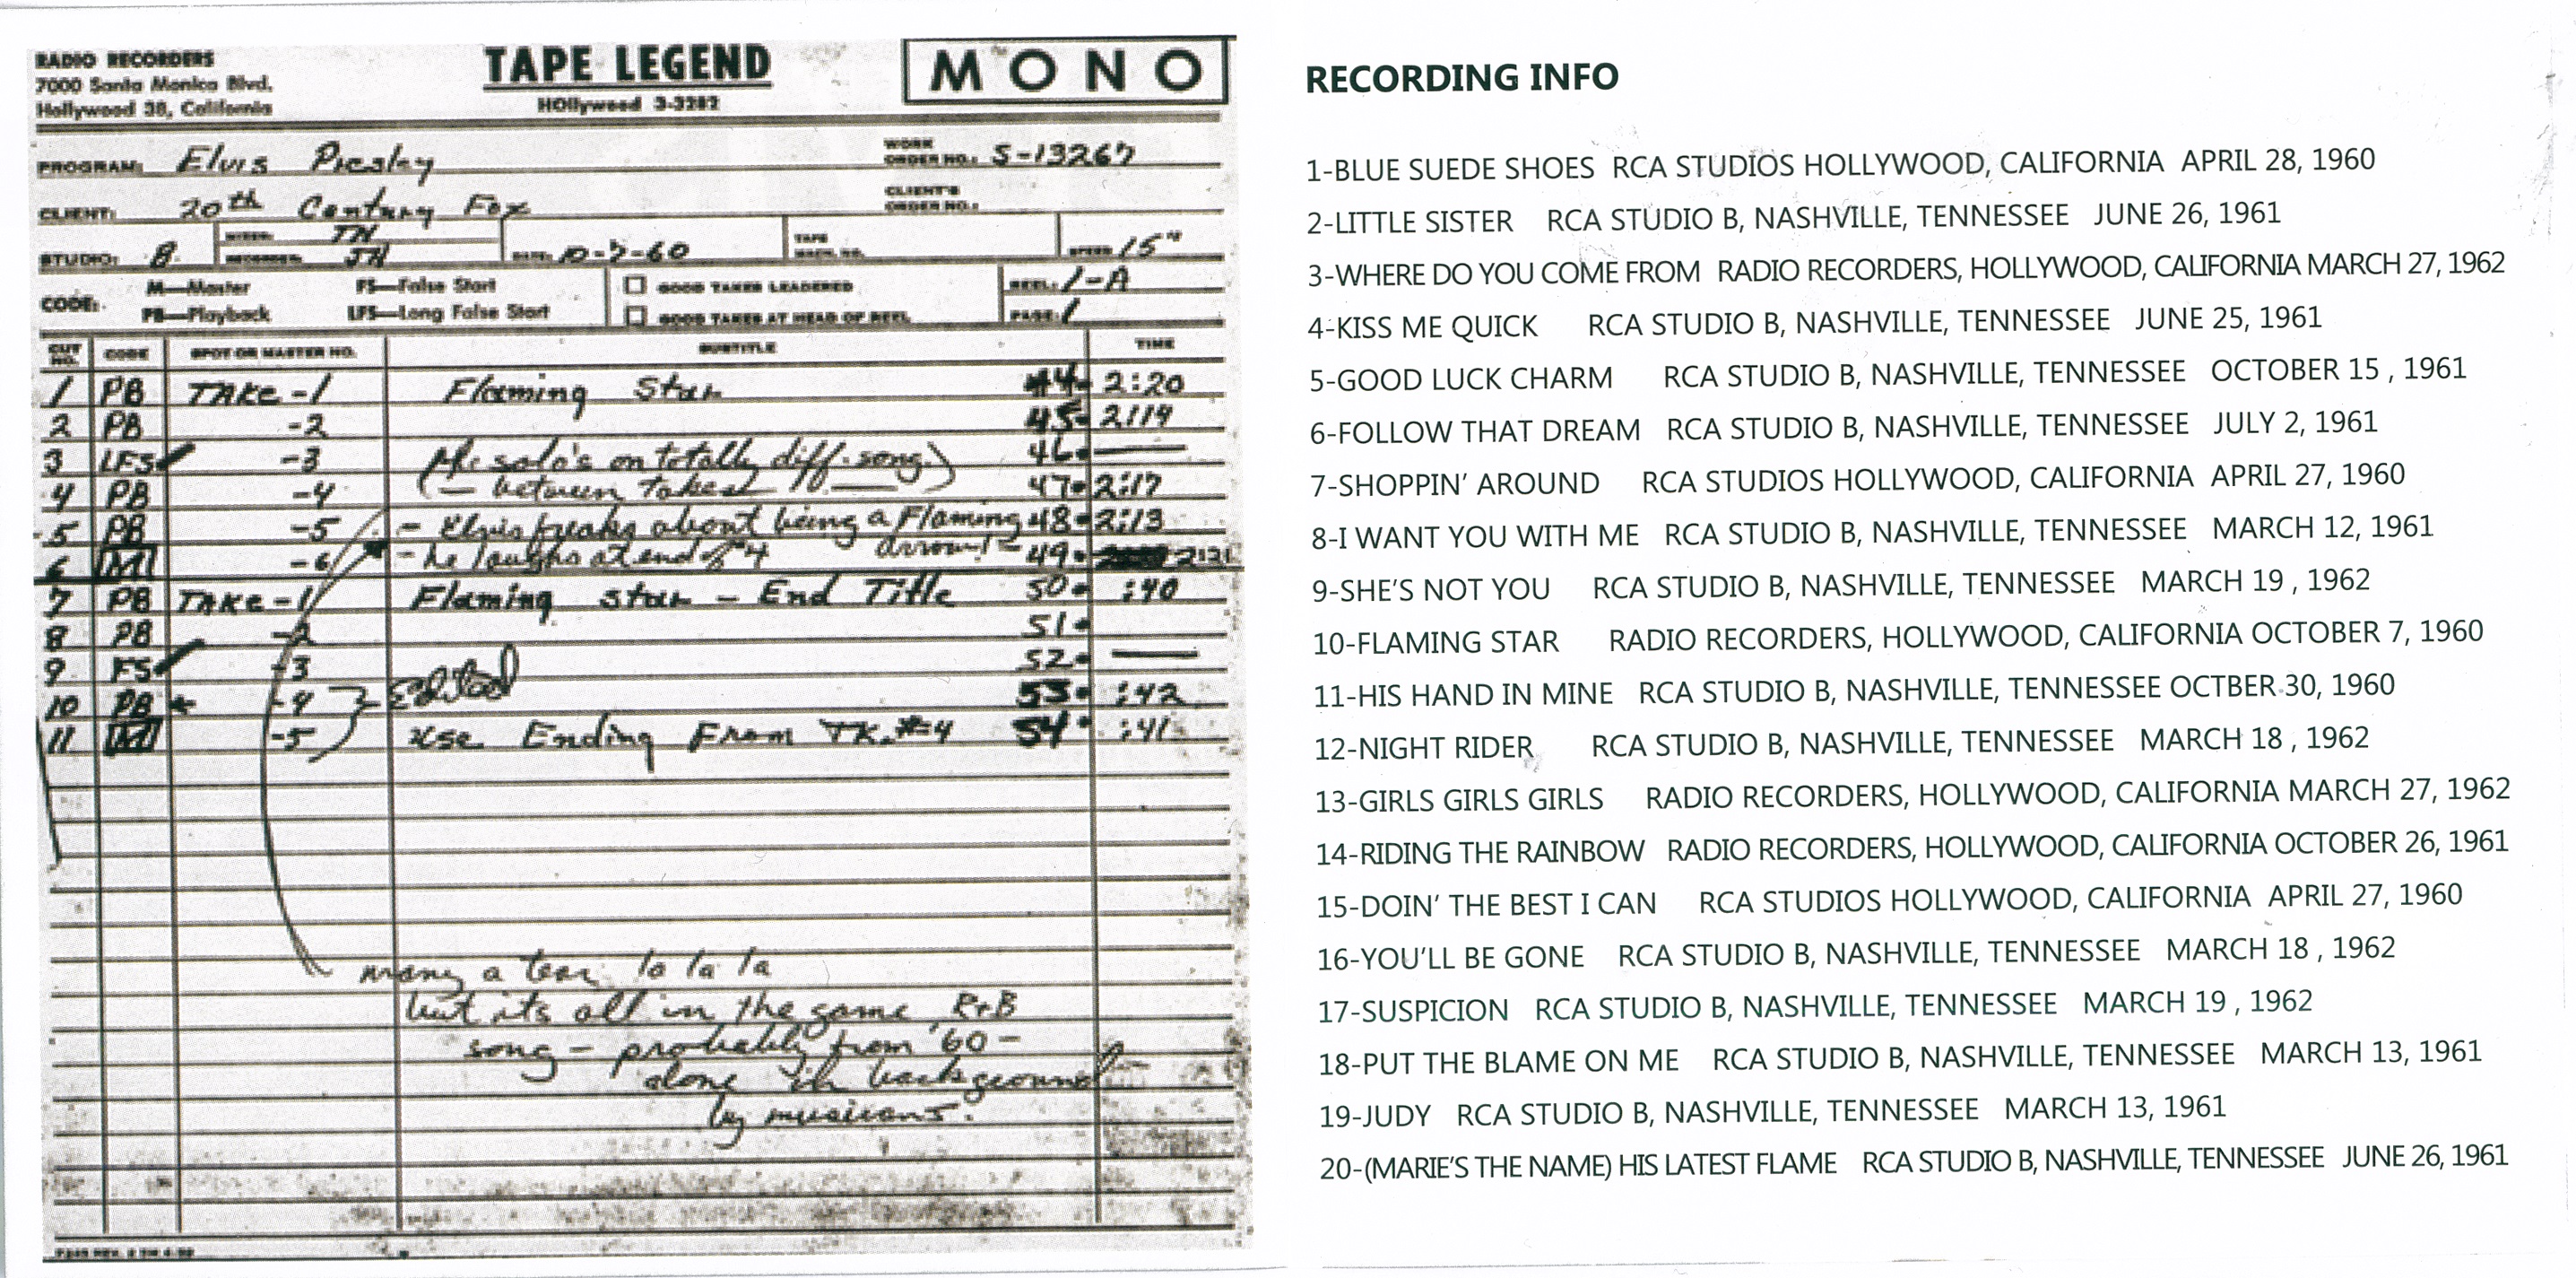 RADIO RECORDERS
7000 Santa Monica Blvd.
Hollywood 38, California
TAPE LEGEND
HOllywood 3-3282
MONO
PROGRAM: Elvis Presley
WORK ORDER NO.: S-13267
CLIENT: 20th Century Fox
CLIENT'S ORDER NO.:
STUDIO: B MIXER: TN RECORDER: JN DATE: 10-7-60 TAPE MACH. NO. SPEED 15"
CODE: M—Master FS—False Start
PB—Playback LFS—Long False Start
GOOD TAKES LEADERED
GOOD TAKES AT HEAD OF REEL
REEL: 1-A
PAGE: 1
CUT NO. CODE SPOT OR MASTER NO. SUBTITLE TIME
1 PB TAKE -1 Flaming Star 44 2:20
2 PB -2 45 2:19
3 LFS -3 (He solo's on totally diff. song.) 46
4 PB -4 (— between takes) 47 2:17
5 PB -5 - Elvis freaks about being a Flaming 48 2:13
arrow!
6 M -6 - he laughs at end of #4 49 2:21
7 PB TAKE -1 Flaming Star - End Title 50 :40
8 PB -2 51
9 FS -3 52
10 PB -4 Edited 53 :42
11 M -5 use Ending From TK. #4 54 :41
many a tear la la la
but its all in the game R+B
song - probably from '60 -
done in background
by musicians.
RECORDING INFO
1-BLUE SUEDE SHOES RCA STUDIOS HOLLYWOOD, CALIFORNIA APRIL 28, 1960
2-LITTLE SISTER RCA STUDIO B, NASHVILLE, TENNESSEE JUNE 26, 1961
3-WHERE DO YOU COME FROM RADIO RECORDERS, HOLLYWOOD, CALIFORNIA MARCH 27, 1962
4-KISS ME QUICK RCA STUDIO B, NASHVILLE, TENNESSEE JUNE 25, 1961
5-GOOD LUCK CHARM RCA STUDIO B, NASHVILLE, TENNESSEE OCTOBER 15 , 1961
6-FOLLOW THAT DREAM RCA STUDIO B, NASHVILLE, TENNESSEE JULY 2, 1961
7-SHOPPIN' AROUND RCA STUDIOS HOLLYWOOD, CALIFORNIA APRIL 27, 1960
8-I WANT YOU WITH ME RCA STUDIO B, NASHVILLE, TENNESSEE MARCH 12, 1961
9-SHE'S NOT YOU RCA STUDIO B, NASHVILLE, TENNESSEE MARCH 19 , 1962
10-FLAMING STAR RADIO RECORDERS, HOLLYWOOD, CALIFORNIA OCTOBER 7, 1960
11-HIS HAND IN MINE RCA STUDIO B, NASHVILLE, TENNESSEE OCTBER 30, 1960
12-NIGHT RIDER RCA STUDIO B, NASHVILLE, TENNESSEE MARCH 18 , 1962
13-GIRLS GIRLS GIRLS RADIO RECORDERS, HOLLYWOOD, CALIFORNIA MARCH 27, 1962
14-RIDING THE RAINBOW RADIO RECORDERS, HOLLYWOOD, CALIFORNIA OCTOBER 26, 1961
15-DOIN' THE BEST I CAN RCA STUDIOS HOLLYWOOD, CALIFORNIA APRIL 27, 1960
16-YOU'LL BE GONE RCA STUDIO B, NASHVILLE, TENNESSEE MARCH 18 , 1962
17-SUSPICION RCA STUDIO B, NASHVILLE, TENNESSEE MARCH 19 , 1962
18-PUT THE BLAME ON ME RCA STUDIO B, NASHVILLE, TENNESSEE MARCH 13, 1961
19-JUDY RCA STUDIO B, NASHVILLE, TENNESSEE MARCH 13, 1961
20-(MARIE'S THE NAME) HIS LATEST FLAME RCA STUDIO B, NASHVILLE, TENNESSEE JUNE 26, 1961